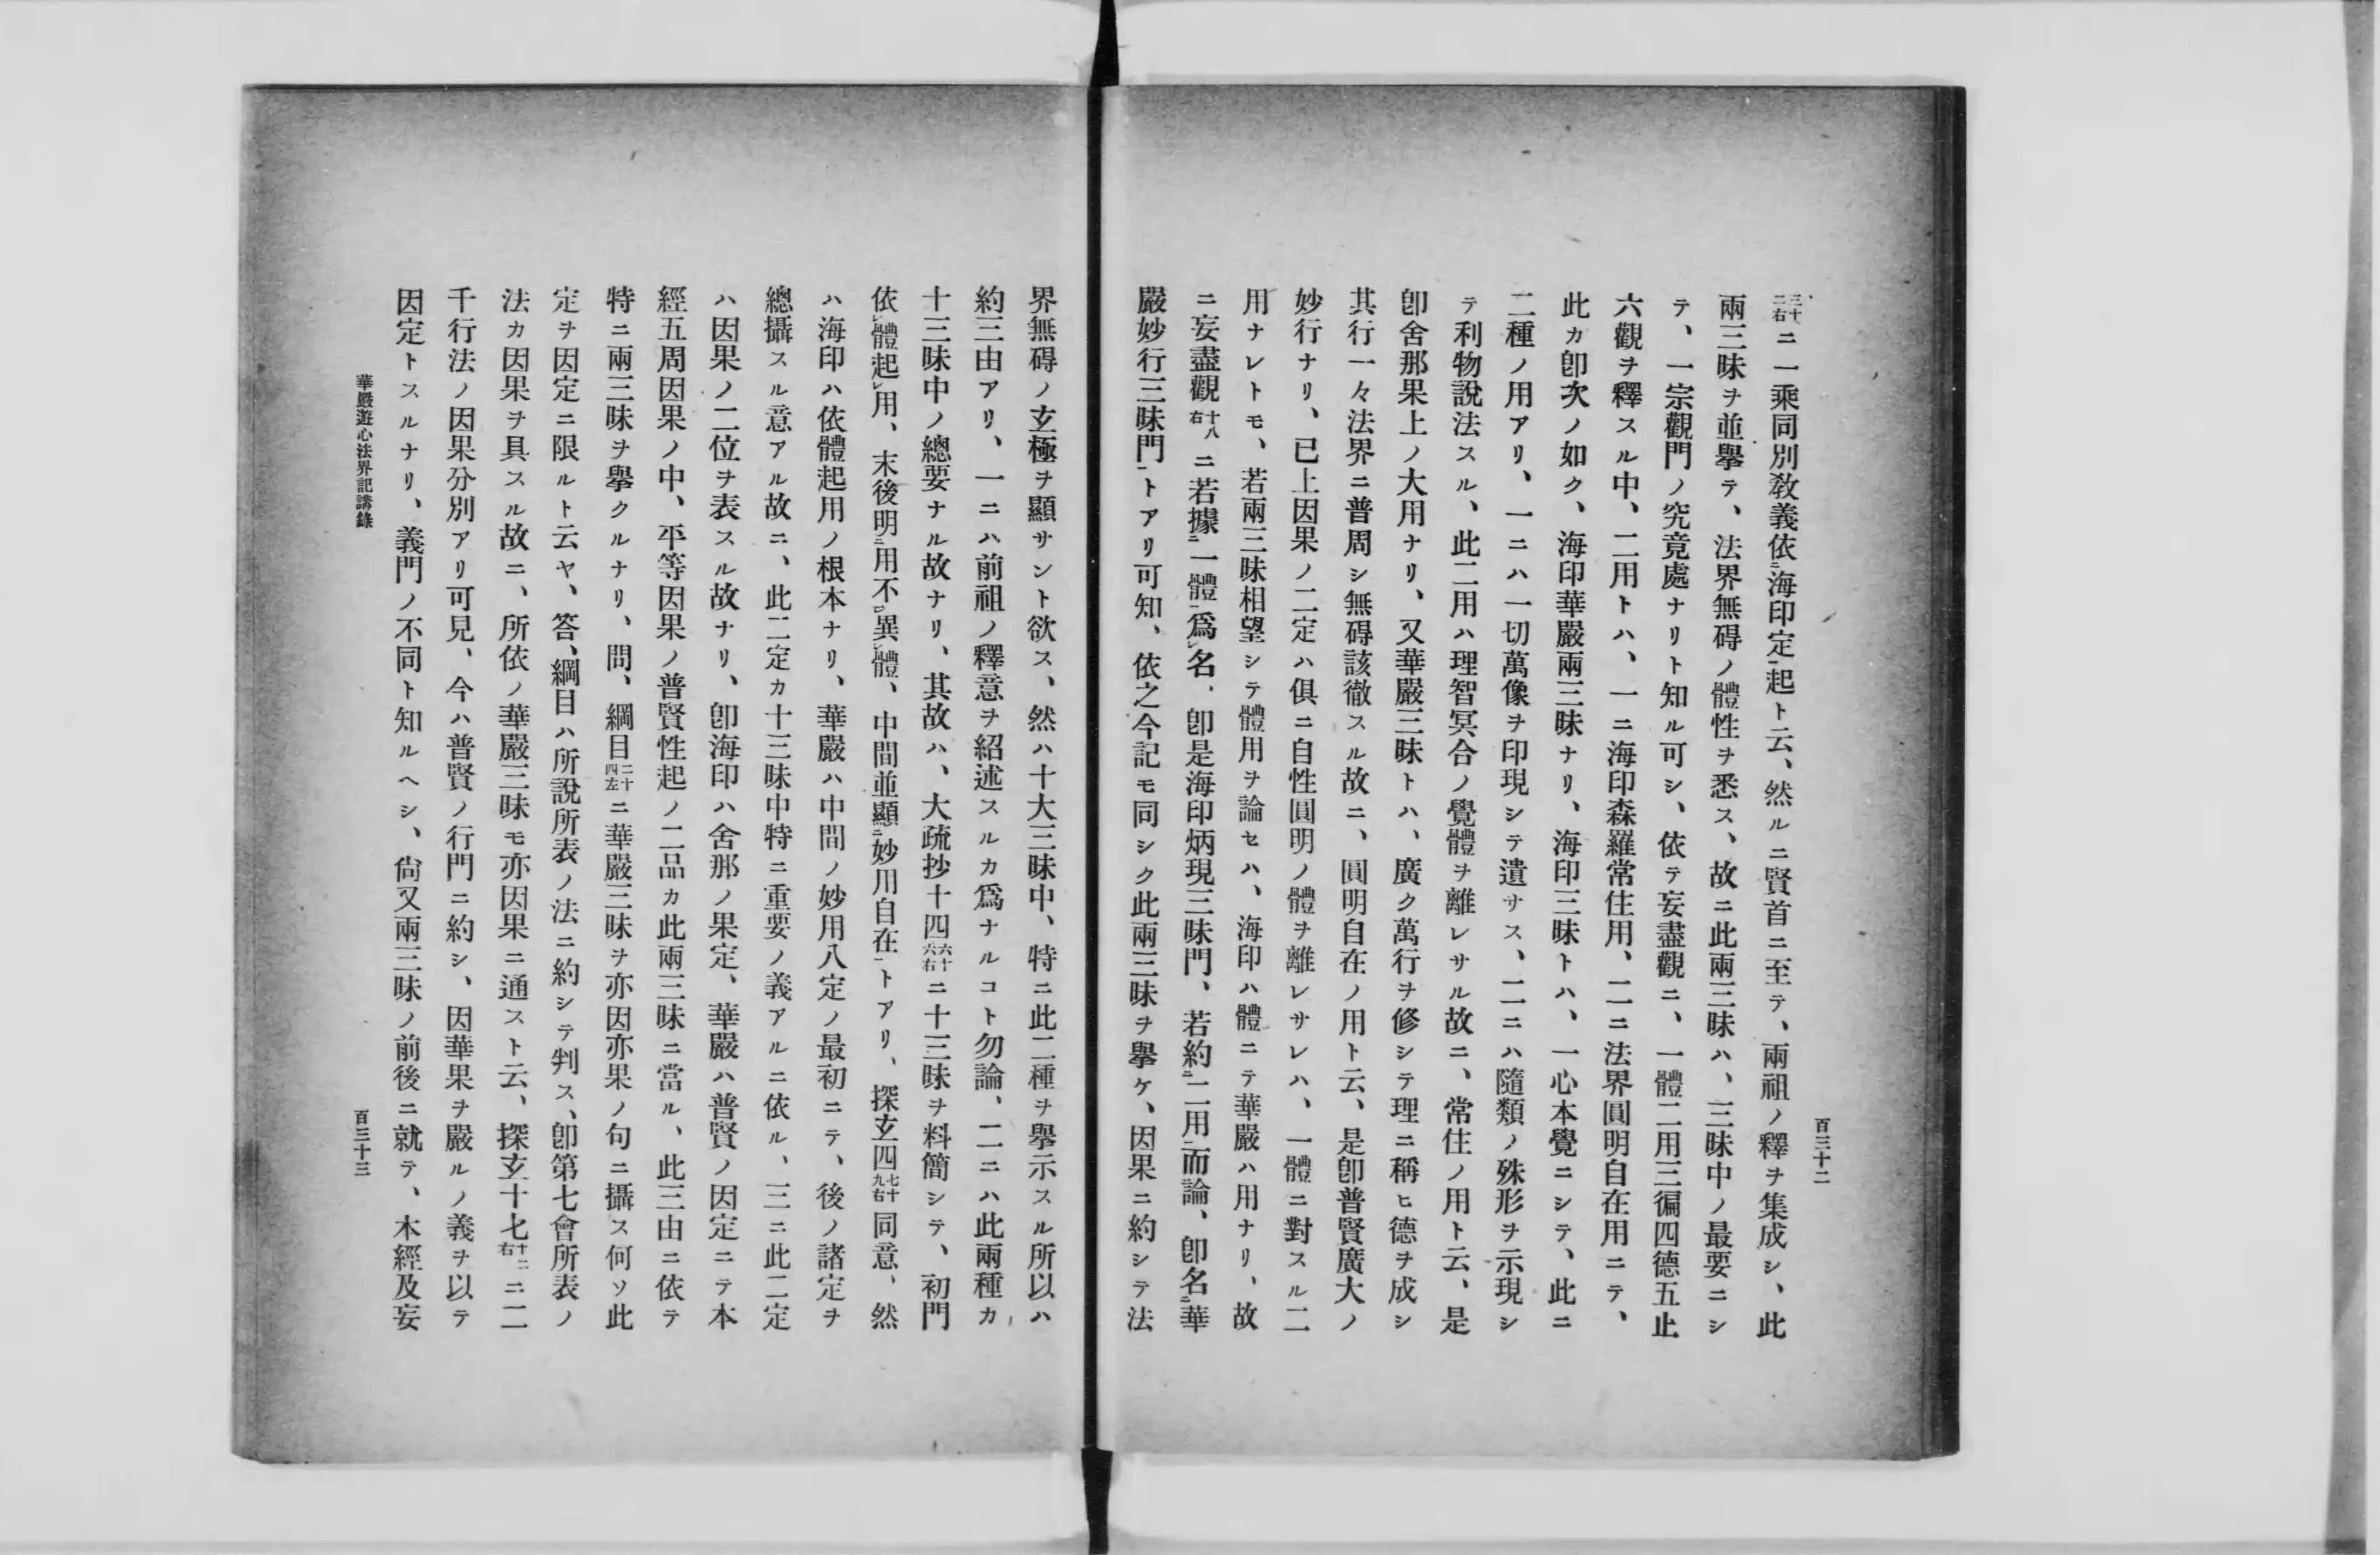 百三十二
三十二右ニ一乘同別教義依二海印定一起ト云、然ルニ賢首ニ至テ、兩祖ノ釋ヲ集成シ、此
兩三昧ヲ並擧テ、法界無碍ノ體性ヲ悉ス、故ニ此兩三昧ハ、三昧中ノ最要ニシ
テ、一宗觀門ノ究竟處ナリト知ル可シ、依テ妄盡觀ニ、一體二用三徧四德五止
六觀ヲ釋スル中、二用トハ、一ニ海印森羅常住用、二ニ法界圓明自在用ニテ、
此カ卽次ノ如ク、海印華嚴兩三昧ナリ、海印三昧トハ、一心本覺ニシテ、此ニ
二種ノ用アリ、一ニハ一切萬像ヲ印現シテ遺サス、二ニハ隨類ノ殊形ヲ示現シ
テ利物說法スル、此二用ハ理智冥合ノ覺體ヲ離レサル故ニ、常住ノ用ト云、是
卽舍那果上ノ大用ナリ、又華嚴三昧トハ、廣ク萬行ヲ修シテ理ニ稱ヒ德ヲ成シ
其行一々法界ニ普周シ無碍該徹スル故ニ、圓明自在ノ用ト云、是卽普賢廣大ノ
妙行ナリ、已上因果ノ二定ハ俱ニ自性圓明ノ體ヲ離レサレハ、一體ニ對スル二
用ナレトモ、若兩三昧相望シテ體用ヲ論セハ、海印ハ體ニテ華嚴ハ用ナリ、故
ニ妄盡觀十八右ニ若據二一體一爲レ名、卽是海印炳現三昧門、若約二二用一而論、卽名二華
嚴妙行三昧門一トアリ可知、依之今記モ同シク此兩三昧ヲ擧ケ、因果ニ約シテ法
界無碍ノ玄極ヲ顯サント欲ス、然ハ十大三昧中、特ニ此二種ヲ擧示スル所以ハ
約三由アリ、一ニハ前祖ノ釋意ヲ紹述スルカ爲ナルコト勿論、二ニハ此兩種カ
十三昧中ノ總要ナル故ナリ、其故ハ、大疏抄十四六十六右ニ十三昧ヲ料簡シテ、初門
依レ體起レ用、末後明三用不二異レ體、中間並顯二妙用自在一トアリ、探玄四七十九右同意、然
ハ海印ハ依體起用ノ根本ナリ、華嚴ハ中間ノ妙用八定ノ最初ニテ、後ノ諸定ヲ
總攝スル意アル故ニ、此二定カ十三昧中特ニ重要ノ義アルニ依ル、三ニ此二定
ハ因果ノ二位ヲ表スル故ナリ、卽海印ハ舍那ノ果定、華嚴ハ普賢ノ因定ニテ本
經五周因果ノ中、平等因果ノ普賢性起ノ二品カ此兩三昧ニ當ル、此三由ニ依テ
特ニ兩三昧ヲ擧クルナリ、問、綱目二十四左ニ華嚴三昧ヲ亦因亦果ノ句ニ攝ス何ソ此
定ヲ因定ニ限ルト云ヤ、答、綱目ハ所說所表ノ法ニ約シテ判ス、卽第七會所表ノ
法カ因果ヲ具スル故ニ、所依ノ華嚴三昧モ亦因果ニ通スト云、探玄十七十二右ニ二
千行法ノ因果分別アリ可見、今ハ普賢ノ行門ニ約シ、因華果ヲ嚴ルノ義ヲ以テ
因定トスルナリ、義門ノ不同ト知ルヘシ、尙又兩三昧ノ前後ニ就テ、本經及妄
華嚴遊心法界記講錄
百三十三